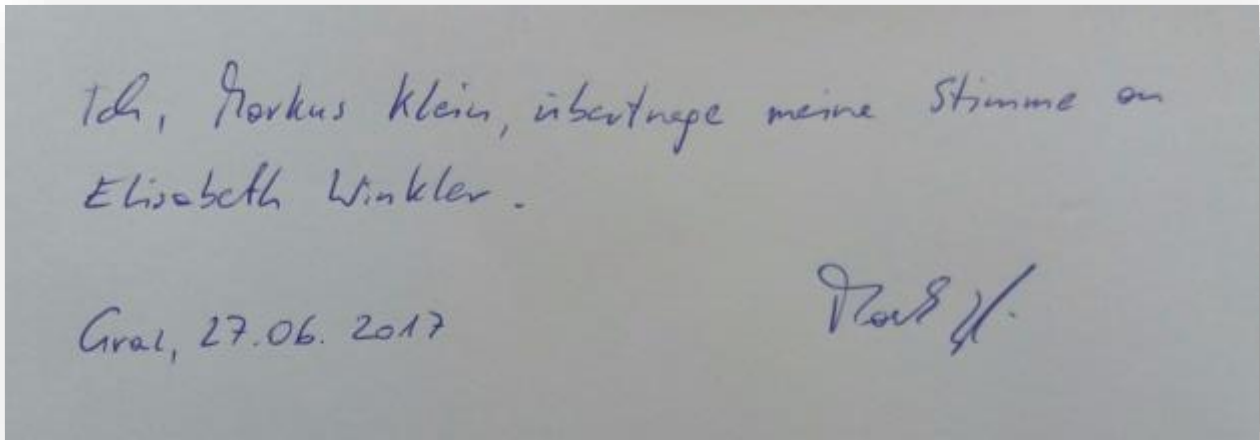 Ich, Markus Klein, übertrage meine Stimme an
Elisabeth Winkler.
Graz, 27.06.2017